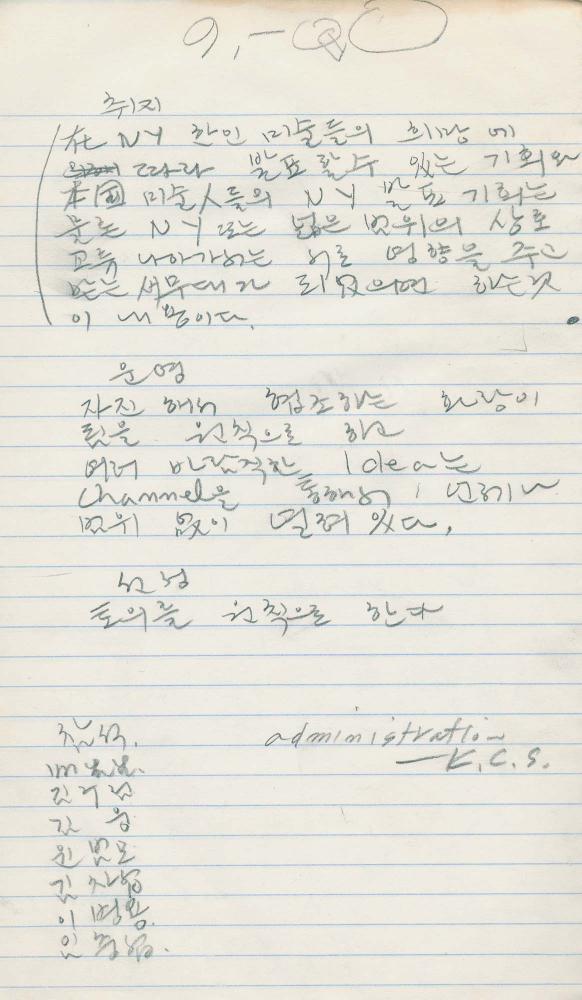 취지
在 NY 한인 미술들의 희망에
따라 발표할 수 있는 기회와
本國 미술人들의 NY 발표 기회는
물론 NY 또는 넓은 범위의 상호
교류 나아가서는 서로 영향을 주고
받는 세무대가 되었으면 하는것
이 내용이다.
운영
자진해서 협조하는 화랑이
됨을 원칙으로 하고
여러 바람직한 Idea는
Channel을 통해서
범위 없이 열려 있다.
선정
토의를 원칙으로 한다
참석.
administration
—K.C.S.
김 웅
원
김 차섭
이
임